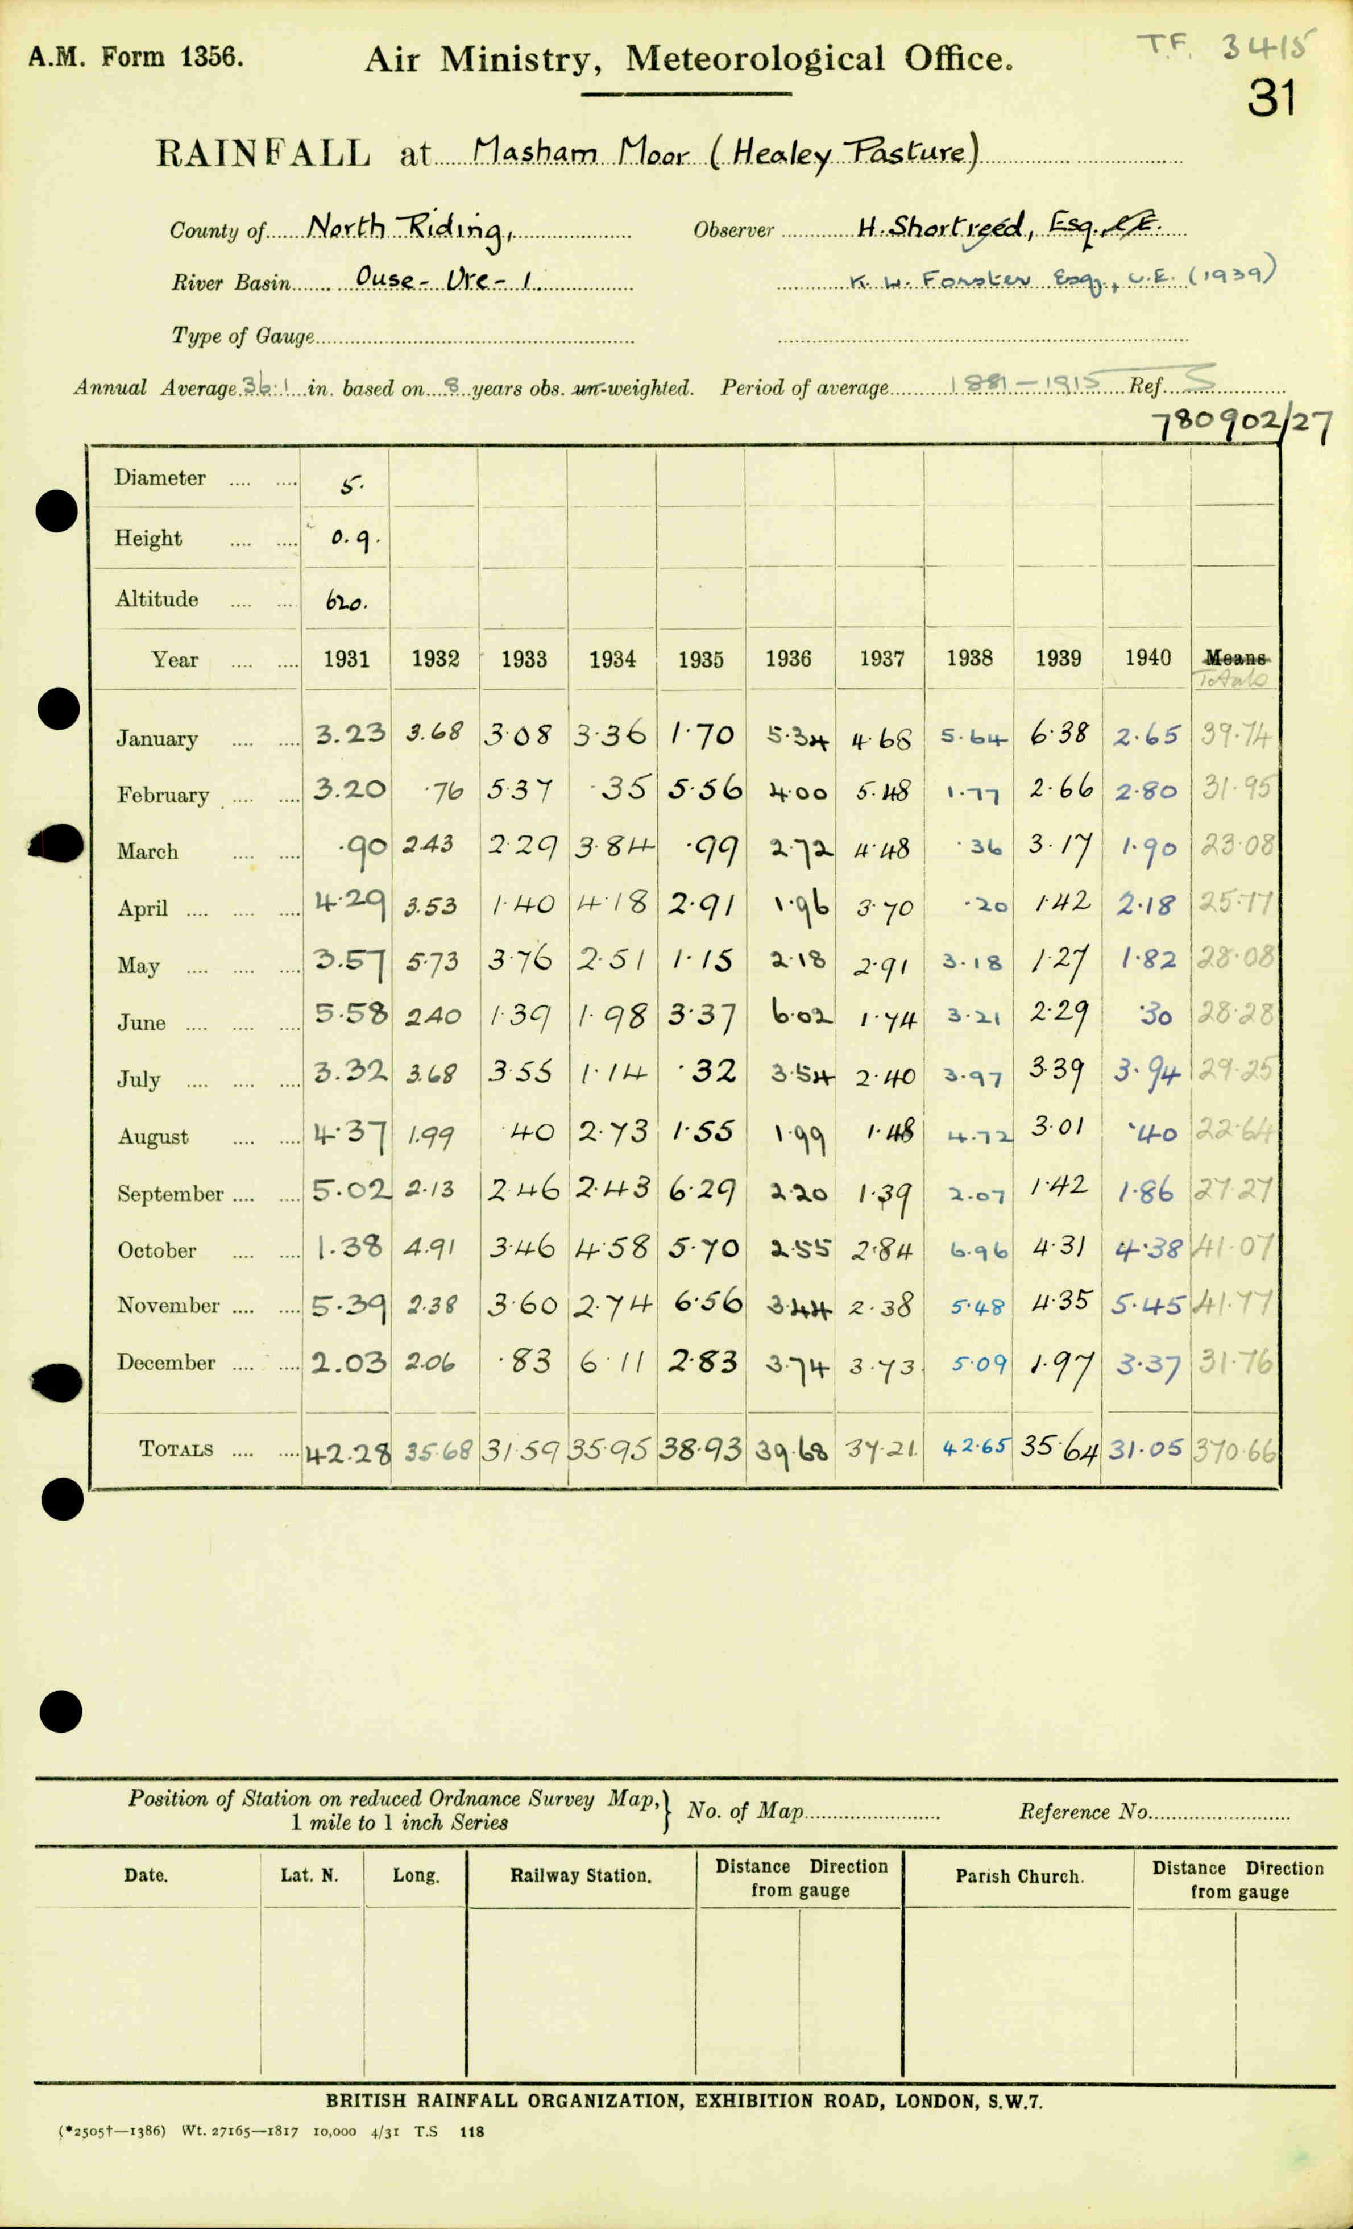 A.M. Form 1356.
Air Ministry, Meteorological Office.
T.F. 3415
31
RAINFALL at Masham Moor (Healey Pasture)
County of North Riding, Observer H. Shortreed, Esq., C.E.
River Basin Ouse - Ure - 1. K. W. Forster Esq., C.E. (1939)
Type of Gauge
Annual Average 36.1 in. based on 8 years obs. un-weighted. Period of average 1881-1915 Ref. S
780902/27
Diameter .... .... 5.
Height .... .... 0.9.
Altitude .... .... 620.
Year .... .... 1931 1932 1933 1934 1935 1936 1937 1938 1939 1940 Means
Totals
January .... .... 3.23 3.68 3.08 3.36 1.70 5.34 4.68 5.64 6.38 2.65 39.74
February .... .... 3.20 .76 5.37 .35 5.56 4.00 5.48 1.77 2.66 2.80 31.95
March .... .... .90 2.43 2.29 3.84 .99 2.72 4.48 .36 3.17 1.90 23.08
April .... .... .... 4.29 3.53 1.40 4.18 2.91 1.96 3.70 .20 1.42 2.18 25.77
May .... .... .... 3.57 5.73 3.76 2.51 1.15 2.18 2.91 3.18 1.27 1.82 28.08
June .... .... .... 5.58 2.40 1.39 1.98 3.37 6.02 1.74 3.21 2.29 .30 28.28
July .... .... .... 3.32 3.68 3.55 1.14 .32 3.54 2.40 3.97 3.39 3.94 29.25
August .... .... 4.37 1.99 .40 2.73 1.55 1.99 1.48 4.72 3.01 .40 22.64
September .... .... 5.02 2.13 2.46 2.43 6.29 2.20 1.39 2.07 1.42 1.86 27.27
October .... .... 1.38 4.91 3.46 4.58 5.70 2.55 2.84 6.96 4.31 4.38 41.07
November .... .... 5.39 2.38 3.60 2.74 6.56 3.44 2.38 5.48 4.35 5.45 41.77
December .... .... 2.03 2.06 .83 6.11 2.83 3.74 3.73 5.09 1.97 3.37 31.76
TOTALS .... .... 42.28 35.68 31.59 35.95 38.93 39.68 37.21 42.65 35.64 31.05 370.66
Position of Station on reduced Ordnance Survey Map,} No. of Map Reference No.
1 mile to 1 inch Series
Date. Lat. N. Long. Railway Station. Distance Direction Parish Church. Distance Direction
from gauge from gauge
BRITISH RAINFALL ORGANIZATION, EXHIBITION ROAD, LONDON, S.W.7.
(*2505†—1386) Wt. 27165—1817 10,000 4/31 T.S 118